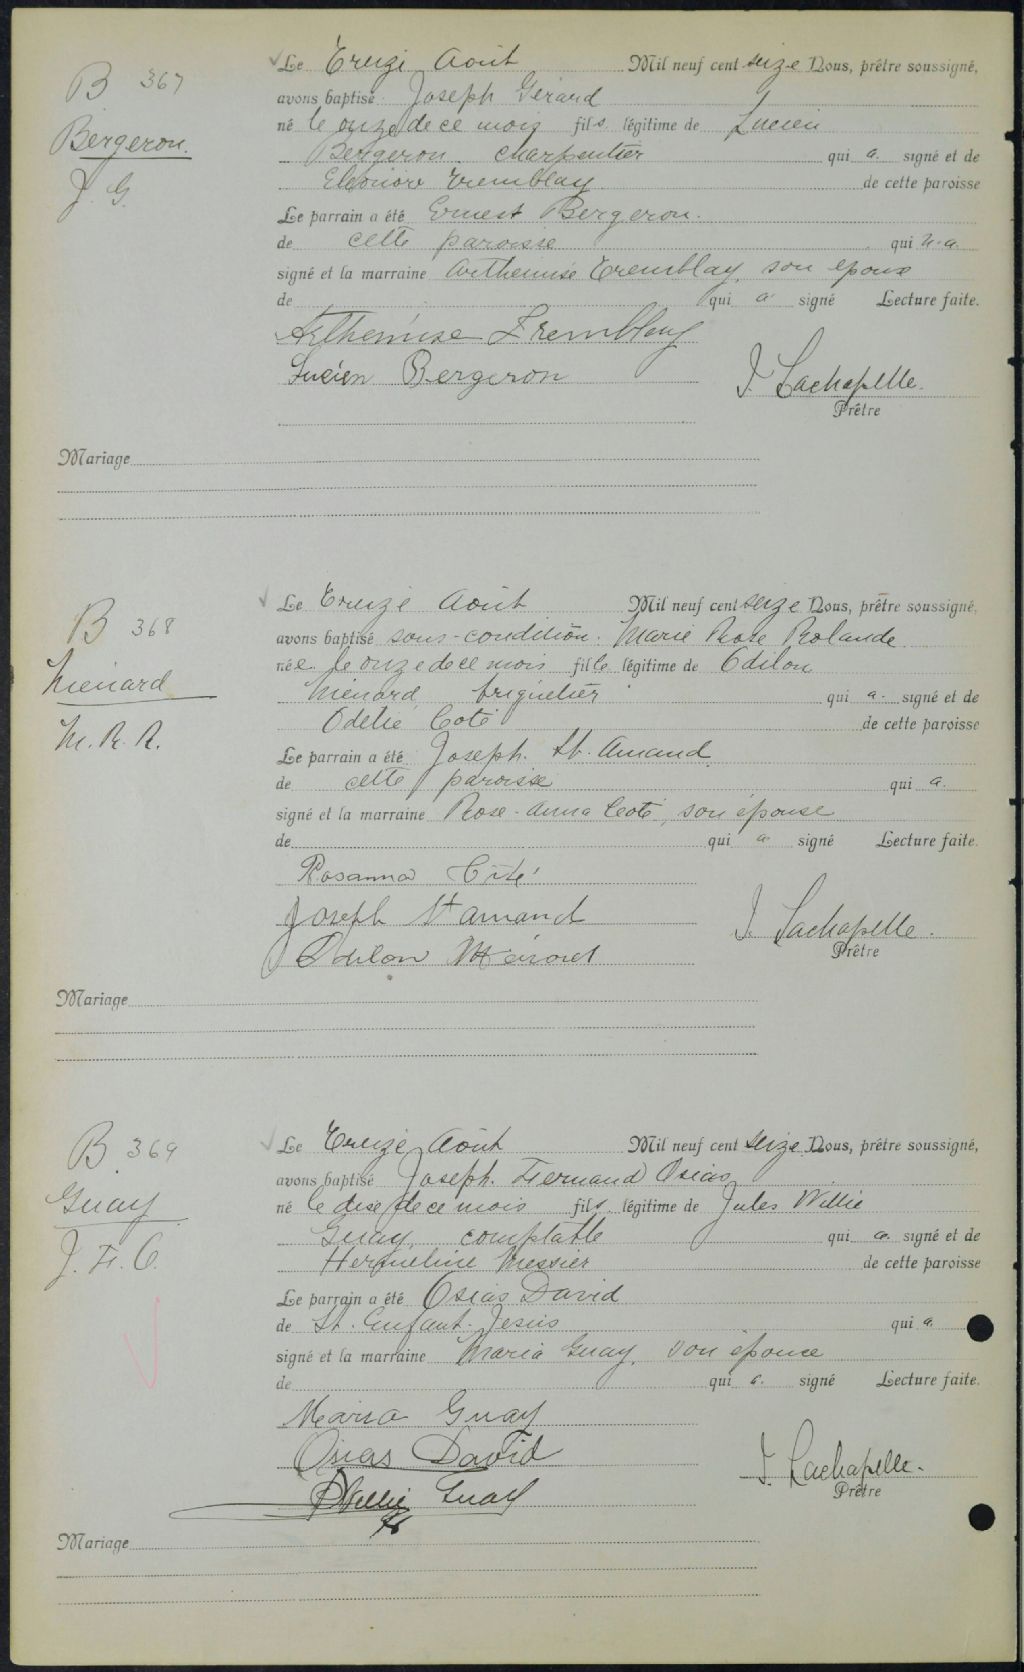 B 367
Bergeron
J. G.
Le Treize Août Mil neuf cent seize Nous, prêtre soussigné,
avons baptisé Joseph Gérard
né le onze de ce mois fils légitime de Lucien
Bergeron charpentier qui a signé et de
Eléonore Tremblay de cette paroisse
Le parrain a été Ernest Bergeron
de cette paroisse qui n'a
signé et la marraine Arthémise Tremblay, son épouse
de qui a signé Lecture faite.
Arthemise Tremblay
Lucien Bergeron
J. Lachapelle.
Prêtre
Mariage
B 368
Ménard
M. R. R.
Le Treize Août Mil neuf cent seize Nous, prêtre soussigné,
avons baptisé sous-condition Marie Rose Rolande
née le onze de ce mois fille légitime de Odilon
Ménard briquetier qui a signé et de
Odelie Coté de cette paroisse
Le parrain a été Joseph St. Amand
de cette paroisse qui a
signé et la marraine Rose-Anna Coté, son épouse
de qui a signé Lecture faite.
Rosanna Côté
Joseph St amand
Odilon Ménard
J. Lachapelle.
Prêtre
Mariage
B. 369
Guay
J. F. O.
Le Treize Août Mil neuf cent seize Nous, prêtre soussigné,
avons baptisé Joseph Fernand Osias
né le dix de ce mois fils légitime de Jules Willie
Guay, comptable qui a signé et de
Hermeline Messier de cette paroisse
Le parrain a été Osias David
de St. Enfant-Jesus qui a
signé et la marraine Maria Guay, son épouse
de qui a signé Lecture faite.
Maria Guay
Osias David
Willie Guay
J. Lachapelle.
Prêtre
Mariage